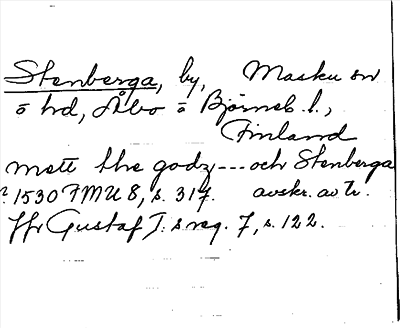 Stenberga, by, Masku sn
o hd, Åbo o Björneb. l.,
Finland
mett thr godz --- och Stenberga
1530 FMU 8, s. 317. avskr. av tr.
Jfr Gustaf I:s reg. 7, s. 122.